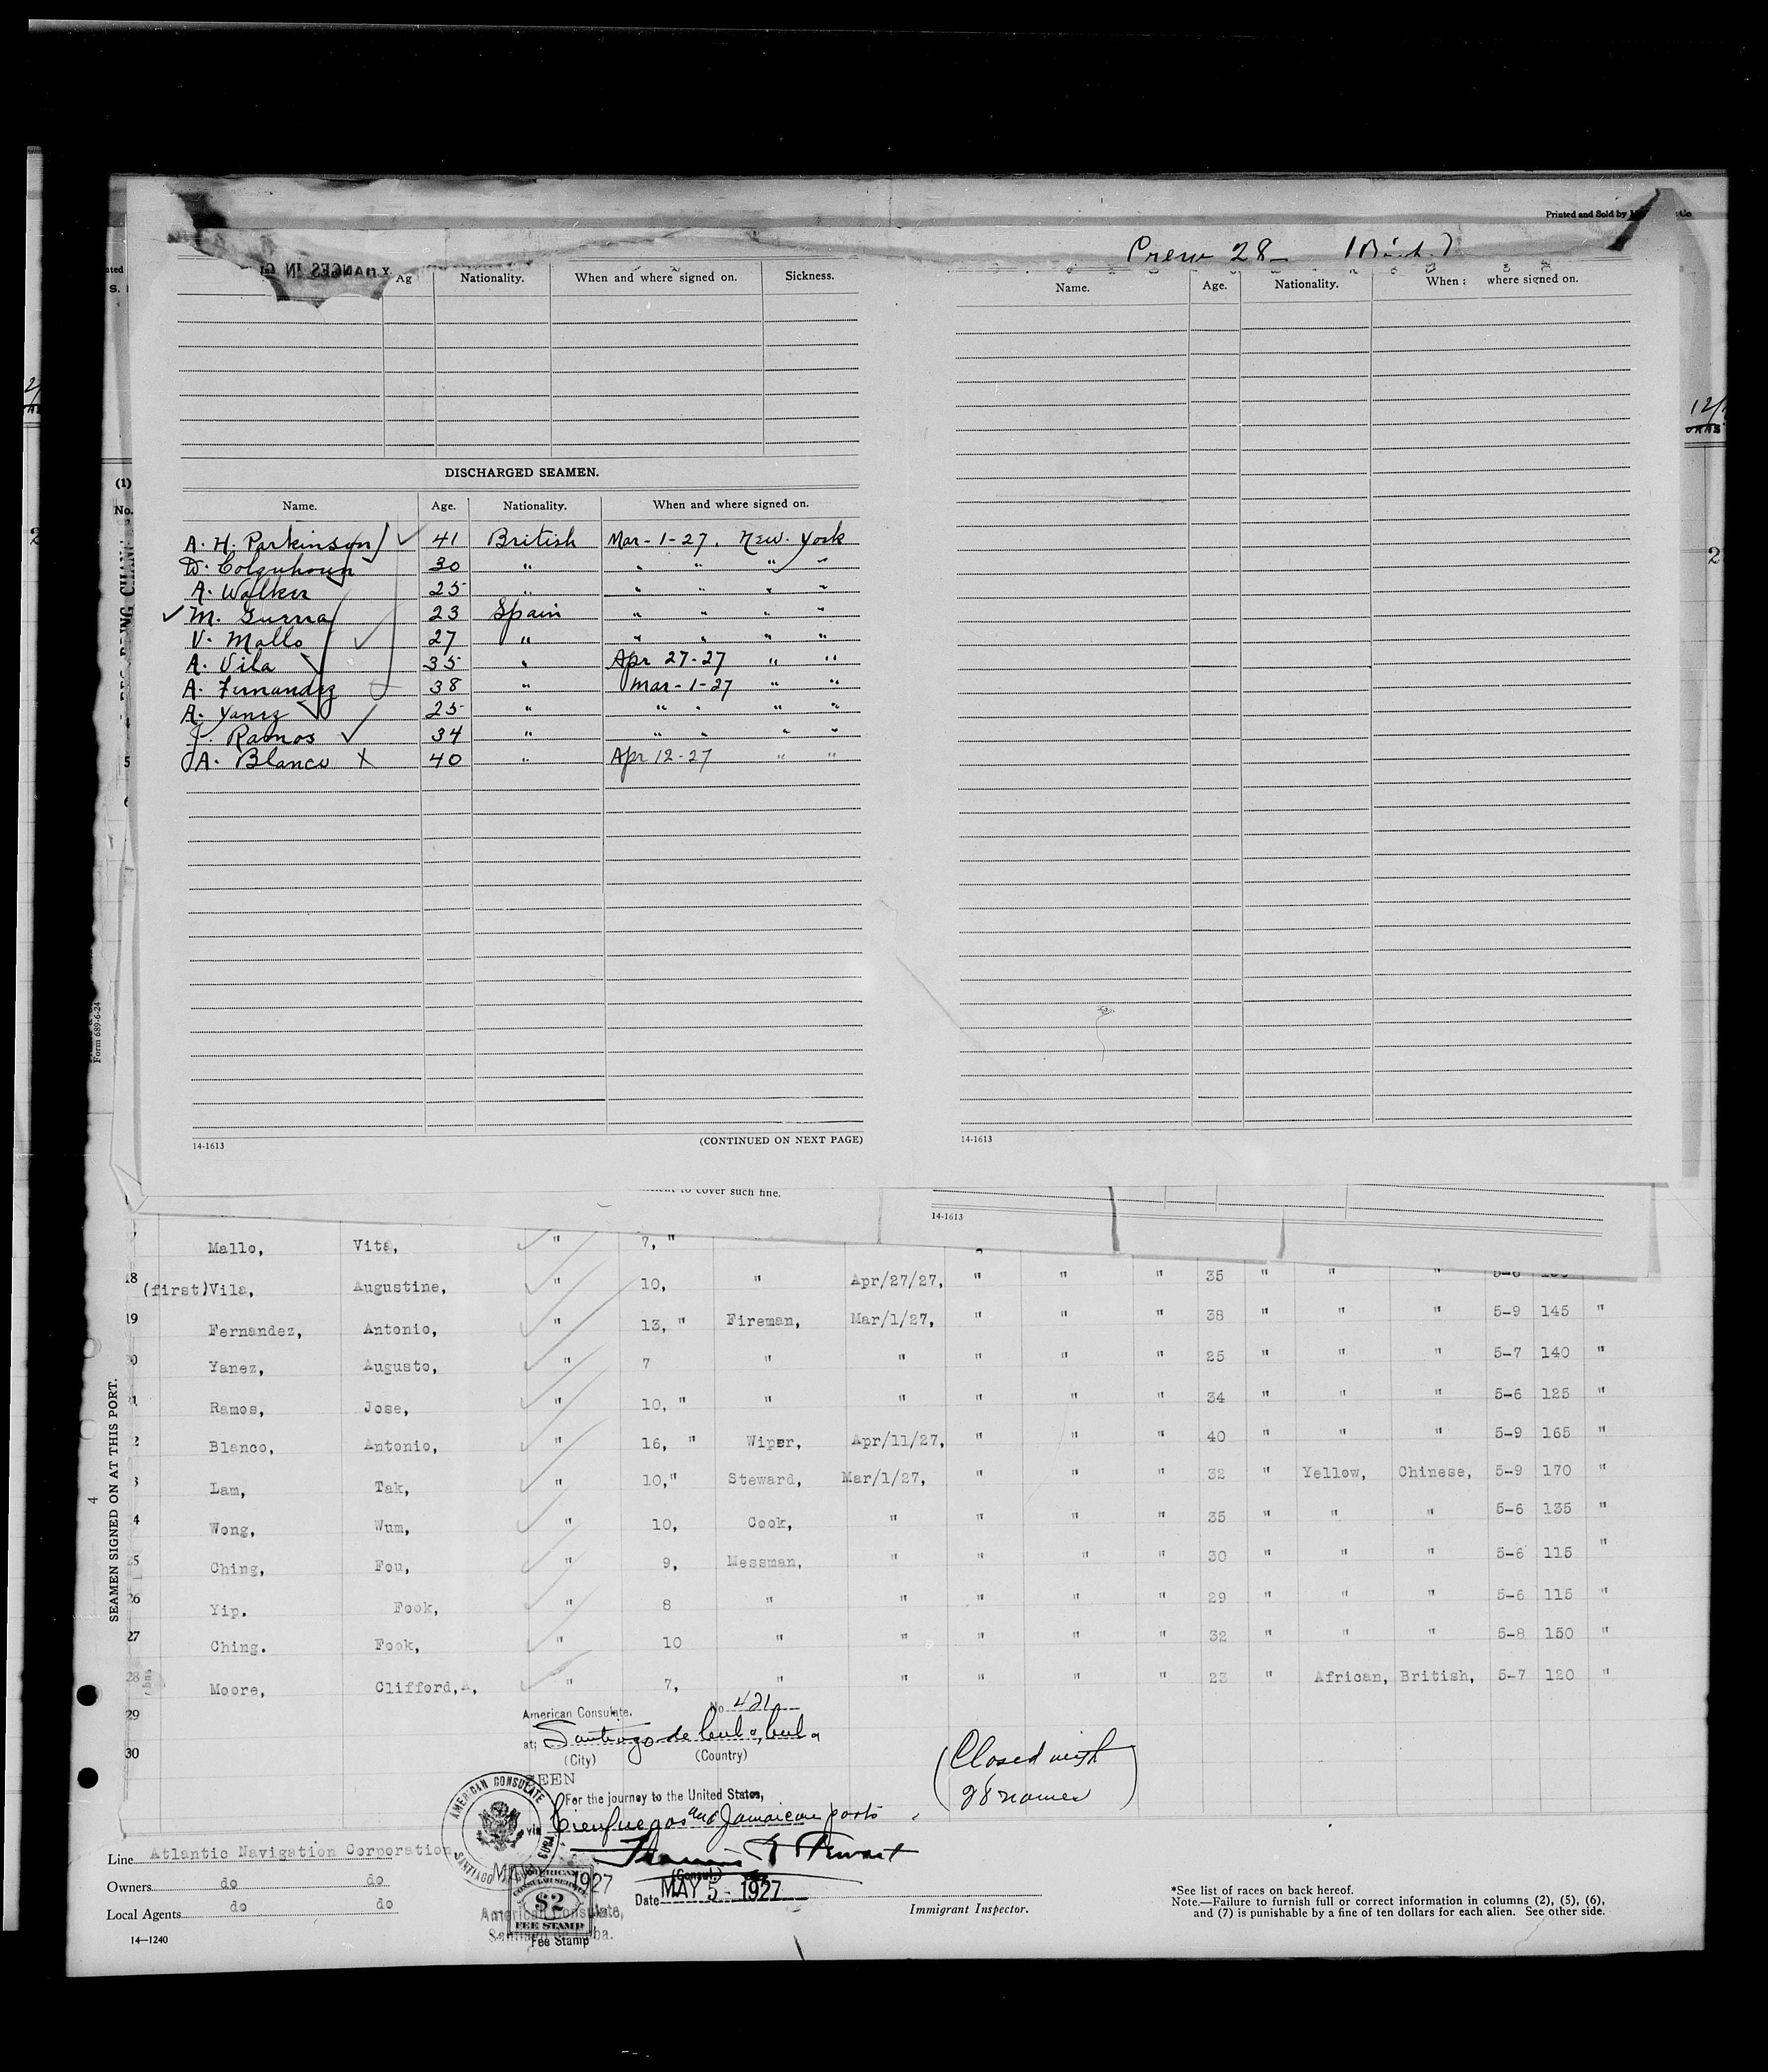 Printed and Sold by
Crew 28
CHANGES IN
Ag Nationality. When and where signed on. Sickness.
Name. Age. Nationality. When where signed on.
DISCHARGED SEAMEN.
Name. Age. Nationality. When and where signed on.
A. H. Parkinson 41 British Mar-1-27. New York
D. Colquhoun 30 " " " " "
A. Walker 25 " " " " "
M. Gurra 23 Spain " " " "
V. Mallo 27 " " " " "
A. Vila 35 " Apr 27-27 " "
A. Fernandez 38 " Mar-1-27 " "
A. Yanez 25 " " " " "
J. Ramos 34 " " " " "
A. Blanco X 40 " Apr 12-27 " "
14-1613 (CONTINUED ON NEXT PAGE) 14-1613
to cover such fine.
14-1613
Form 689-6-24
SEAMEN SIGNED ON AT THIS PORT.
4
Mallo, Vita, " 7, "
18 (first) Vila, Augustine, " 10, " Apr/27/27, " " " 35 " " "
19 Fernandez, Antonio, " 13, " Fireman, Mar/1/27, " " " 38 " " " 5-9 145 "
Yanez, Augusto, " 7 " " " " " 25 " " " 5-7 140 "
Ramos, Jose, " 10, " " " " " " 34 " " " 5-6 125 "
Blanco, Antonio, " 16, " Wiper, Apr/11/27, " " " 40 " " " 5-9 165 "
Lam, Tak, " 10," Steward, Mar/1/27, " " " 32 " Yellow, Chinese, 5-9 170 "
Wong, Wum, " 10, Cook, " " " " 35 " " " 5-6 135 "
25 Ching, Fou, " 9, Messman, " " " " 30 " " " 5-6 115 "
26 Yip. Fook, " 8 " " " " " 29 " " " 5-6 115 "
27 Ching. Fook, " 10 " " " " " 32 " " " 5-8 150 "
28 Moore, Clifford,A, " 7, " " " " " 23 " African, British, 5-7 120 "
29
30
American Consulate. No 421
at Santiago de Cuba, Cuba
(City) (Country)
SEEN
For the journey to the United States,
via Cienfuegos and Jamaican ports
(Closed with
28 names)
AMERICAN CONSULATE
SANTIAGO DE CUBA
(Consul)
Date MAY 5 - 1927
1927
AMERICAN CONSULAR SERVICE
$2
FEE STAMP
American Consulate,
Santiago de Cuba.
Fee Stamp
Line Atlantic Navigation Corporation
Owners do do
Local Agents do do
14—1240
Immigrant Inspector.
*See list of races on back hereof.
Note.—Failure to furnish full or correct information in columns (2), (5), (6),
and (7) is punishable by a fine of ten dollars for each alien. See other side.